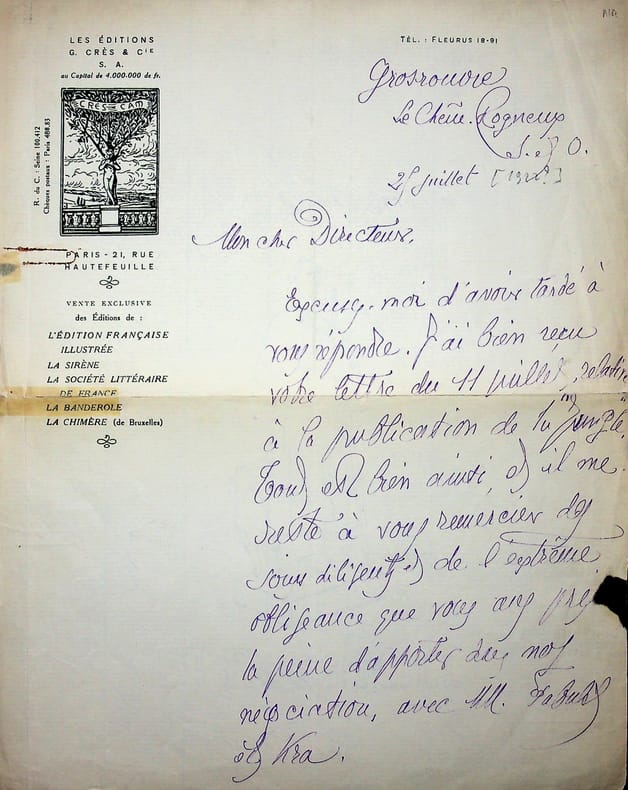 LES ÉDITIONS
G. CRÈS & Cie
S. A.
au Capital de 4.000.000 de fr.
CRES CAM
R. du C. : Seine 100,412
Chèques postaux : Paris 488,83
PARIS - 21, RUE
HAUTEFEUILLE
VENTE EXCLUSIVE
des Éditions de :
L'ÉDITION FRANÇAISE
ILLUSTRÉE
LA SIRÈNE
LA SOCIÉTÉ LITTÉRAIRE
DE FRANCE
LA BANDEROLE
LA CHIMÈRE (de Bruxelles)
TÉL. : FLEURUS 18-91
Grosrouvre
Le Chêne-Rogneux
S. et O.
25 juillet
Mon cher Directeur,
Excusez-moi d'avoir tardé à
vous répondre. J'ai bien reçu
votre lettre du 11 juillet, relative
à la publication de la "Jungle".
Tout est bien ainsi, et il me
reste à vous remercier des
soins diligents et de l'extrême
obligeance que vous avez pris
la peine d'apporter dans nos
négociation, avec MM.
et Kra.